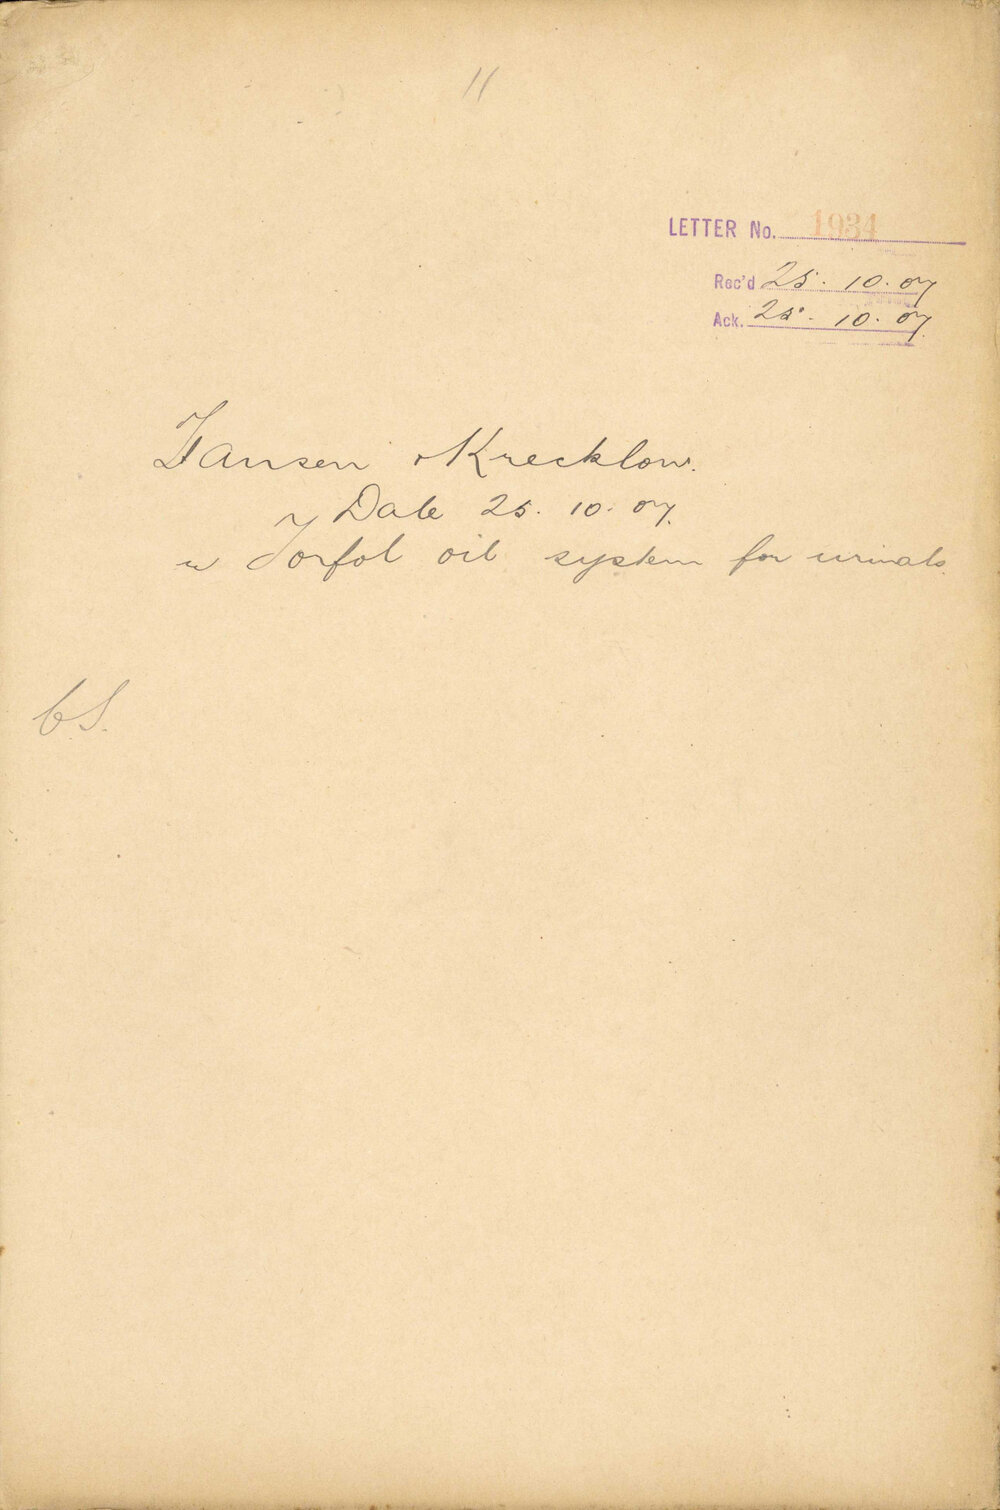 11
LETTER No. 1934
Rec'd 25. 10. 07
Ack. 25. 10. 07.
Krecklow.
Date 25. 10. 07.
Torfol oil system for urinals.